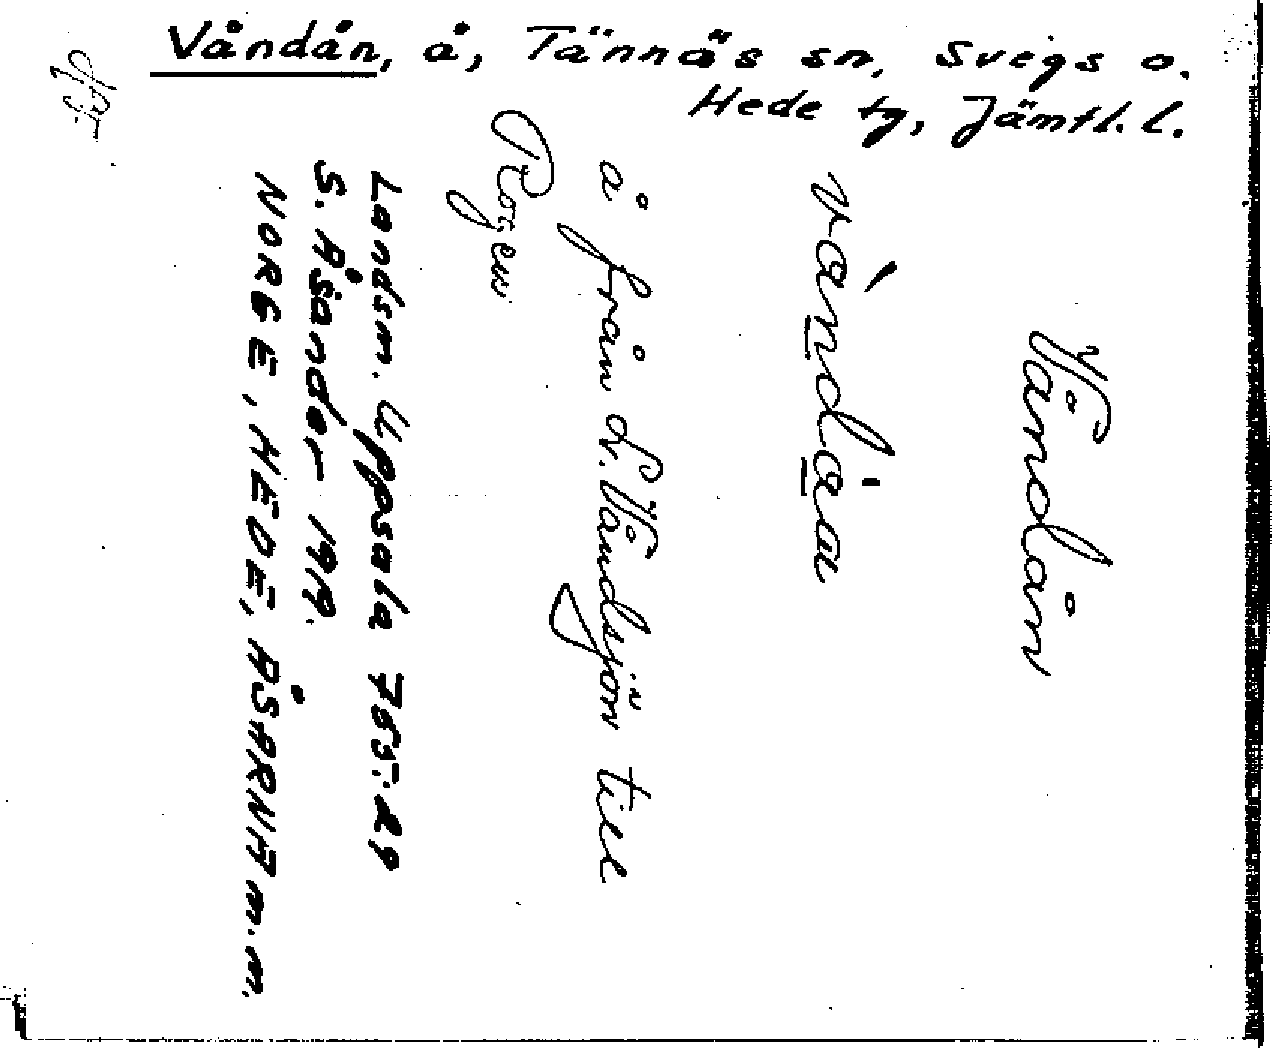 Våndån, å, Tännäs sn, Svegs o.
Hede tg, Jämtl. l.
Våndån
å från L. Våndsjön till
Rogen
Landsm. Uppsala 705:29
S. Åsander 1919.
NORGE, HEDE, ÅSARNA m.m.